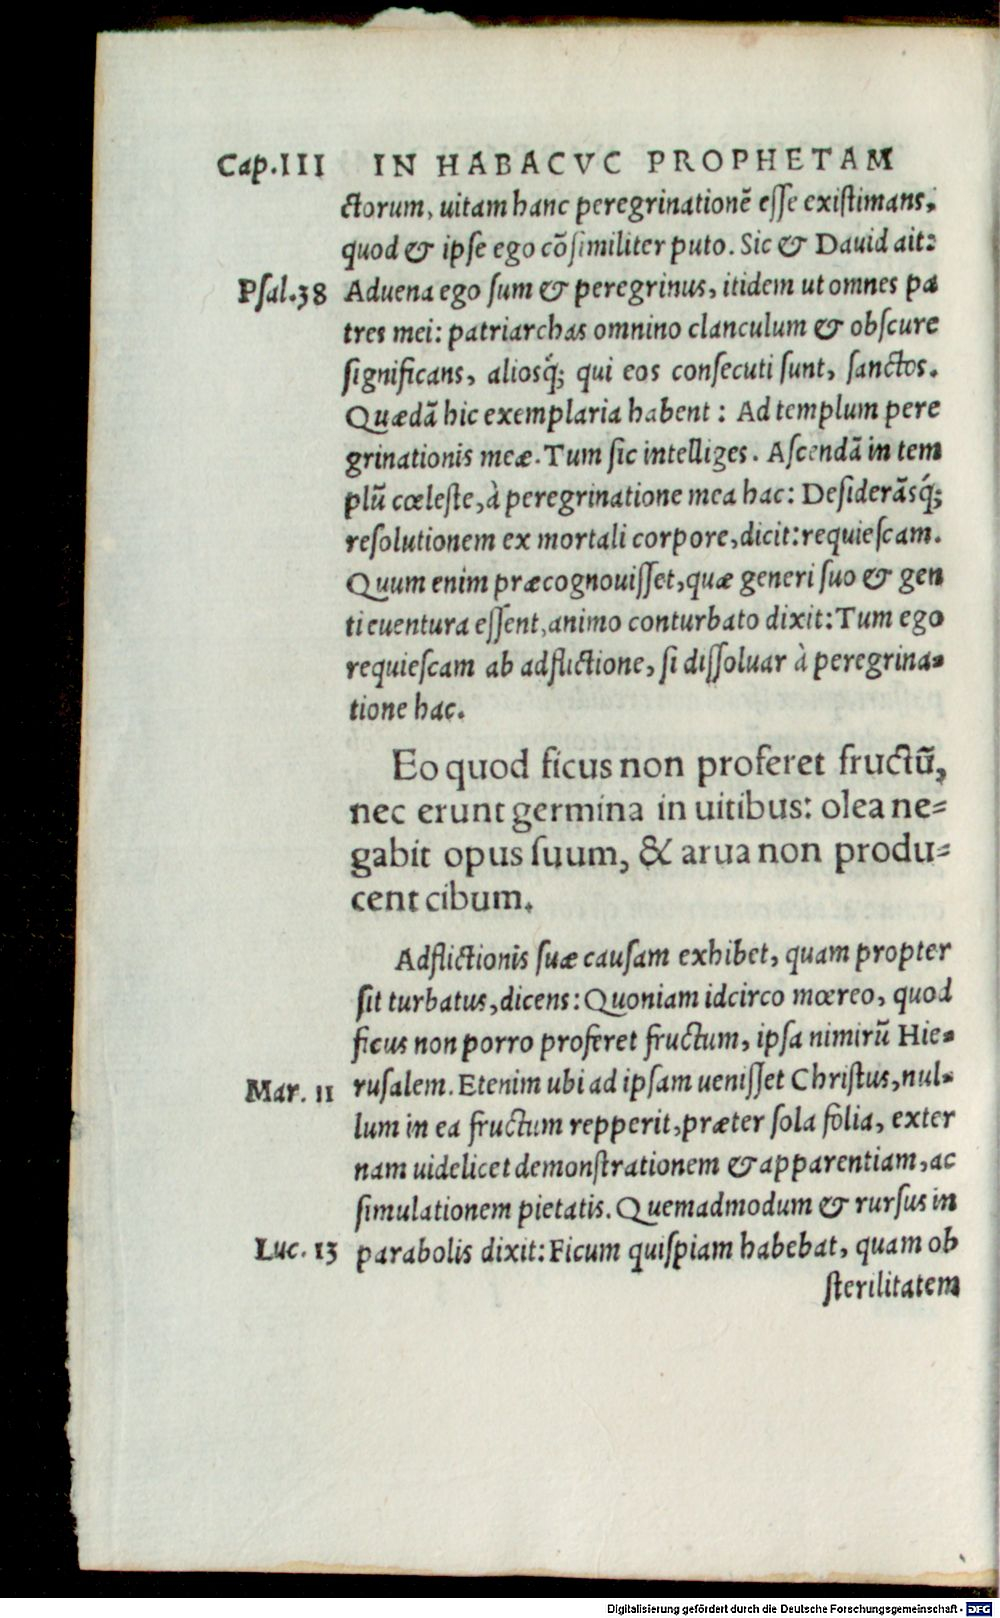 Cap.III IN HABACVC PROPHETAM
ctorum, uitam hanc peregrinationē eſſe exiſtimans,
quod & ipſe ego cōſimiliter puto. Sic & Dauid ait:
Pſal.38 Aduena ego ſum & peregrinus, itidem ut omnes pa
tres mei: patriarchas omnino clanculum & obſcure
ſignificans, aliosq́; qui eos conſecuti ſunt, ſanctos.
Quædā hic exemplaria habent: Ad templum pere
grinationis meæ. Tum ſic intelliges. Aſcendā in tem
plū cœleſte, à peregrinatione mea hac: Deſiderāsq́;
reſolutionem ex mortali corpore, dicit: requieſcam.
Quum enim præcognouiſſet, quæ generi ſuo & gen
ti euentura eſſent, animo conturbato dixit: Tum ego
requieſcam ab adflictione, ſi diſſoluar à peregrina-
tione hac.
Eo quod ficus non proferet fructū,
nec erunt germina in uitibus: olea ne-
gabit opus ſuum, & arua non produ-
cent cibum.
Adflictionis ſuæ cauſam exhibet, quam propter
ſit turbatus, dicens: Quoniam idcirco mœreo, quod
ficus non porro proferet fructum, ipſa nimirū Hie-
Mar. 11 ruſalem. Etenim ubi ad ipſam ueniſſet Chriſtus, nul-
lum in ea fructum repperit, præter ſola folia, exter
nam uidelicet demonſtrationem & apparentiam, ac
ſimulationem pietatis. Quemadmodum & rurſus in
Luc. 13 parabolis dixit: Ficum quiſpiam habebat, quam ob
ſterilitatem
Digitalisierung gefördert durch die Deutsche Forschungsgemeinschaft - DFG